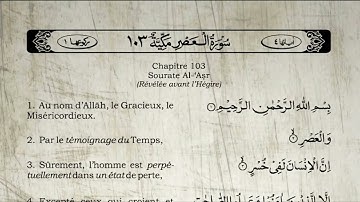 سُوْرَةُ الْعَصْرِ مَكِّيَّةٌ ١٠٣
Chapitre 103
Sourate Al-‘Aṣr
(Révélée avant l’Hégire)
1. Au nom d’Allāh, le Gracieux, le
Miséricordieux.
بِسْمِ اللّٰهِ الرَّحْمٰنِ الرَّحِيْمِ
2. Par le témoignage du Temps,
وَالْعَصْرِ
3. Sûrement, l’homme est perpé-
tuellement dans un état de perte,
اِنَّ الْاِنْسَانَ لَفِيْ خُسْرٍ
4. Excepté ceux qui croient et